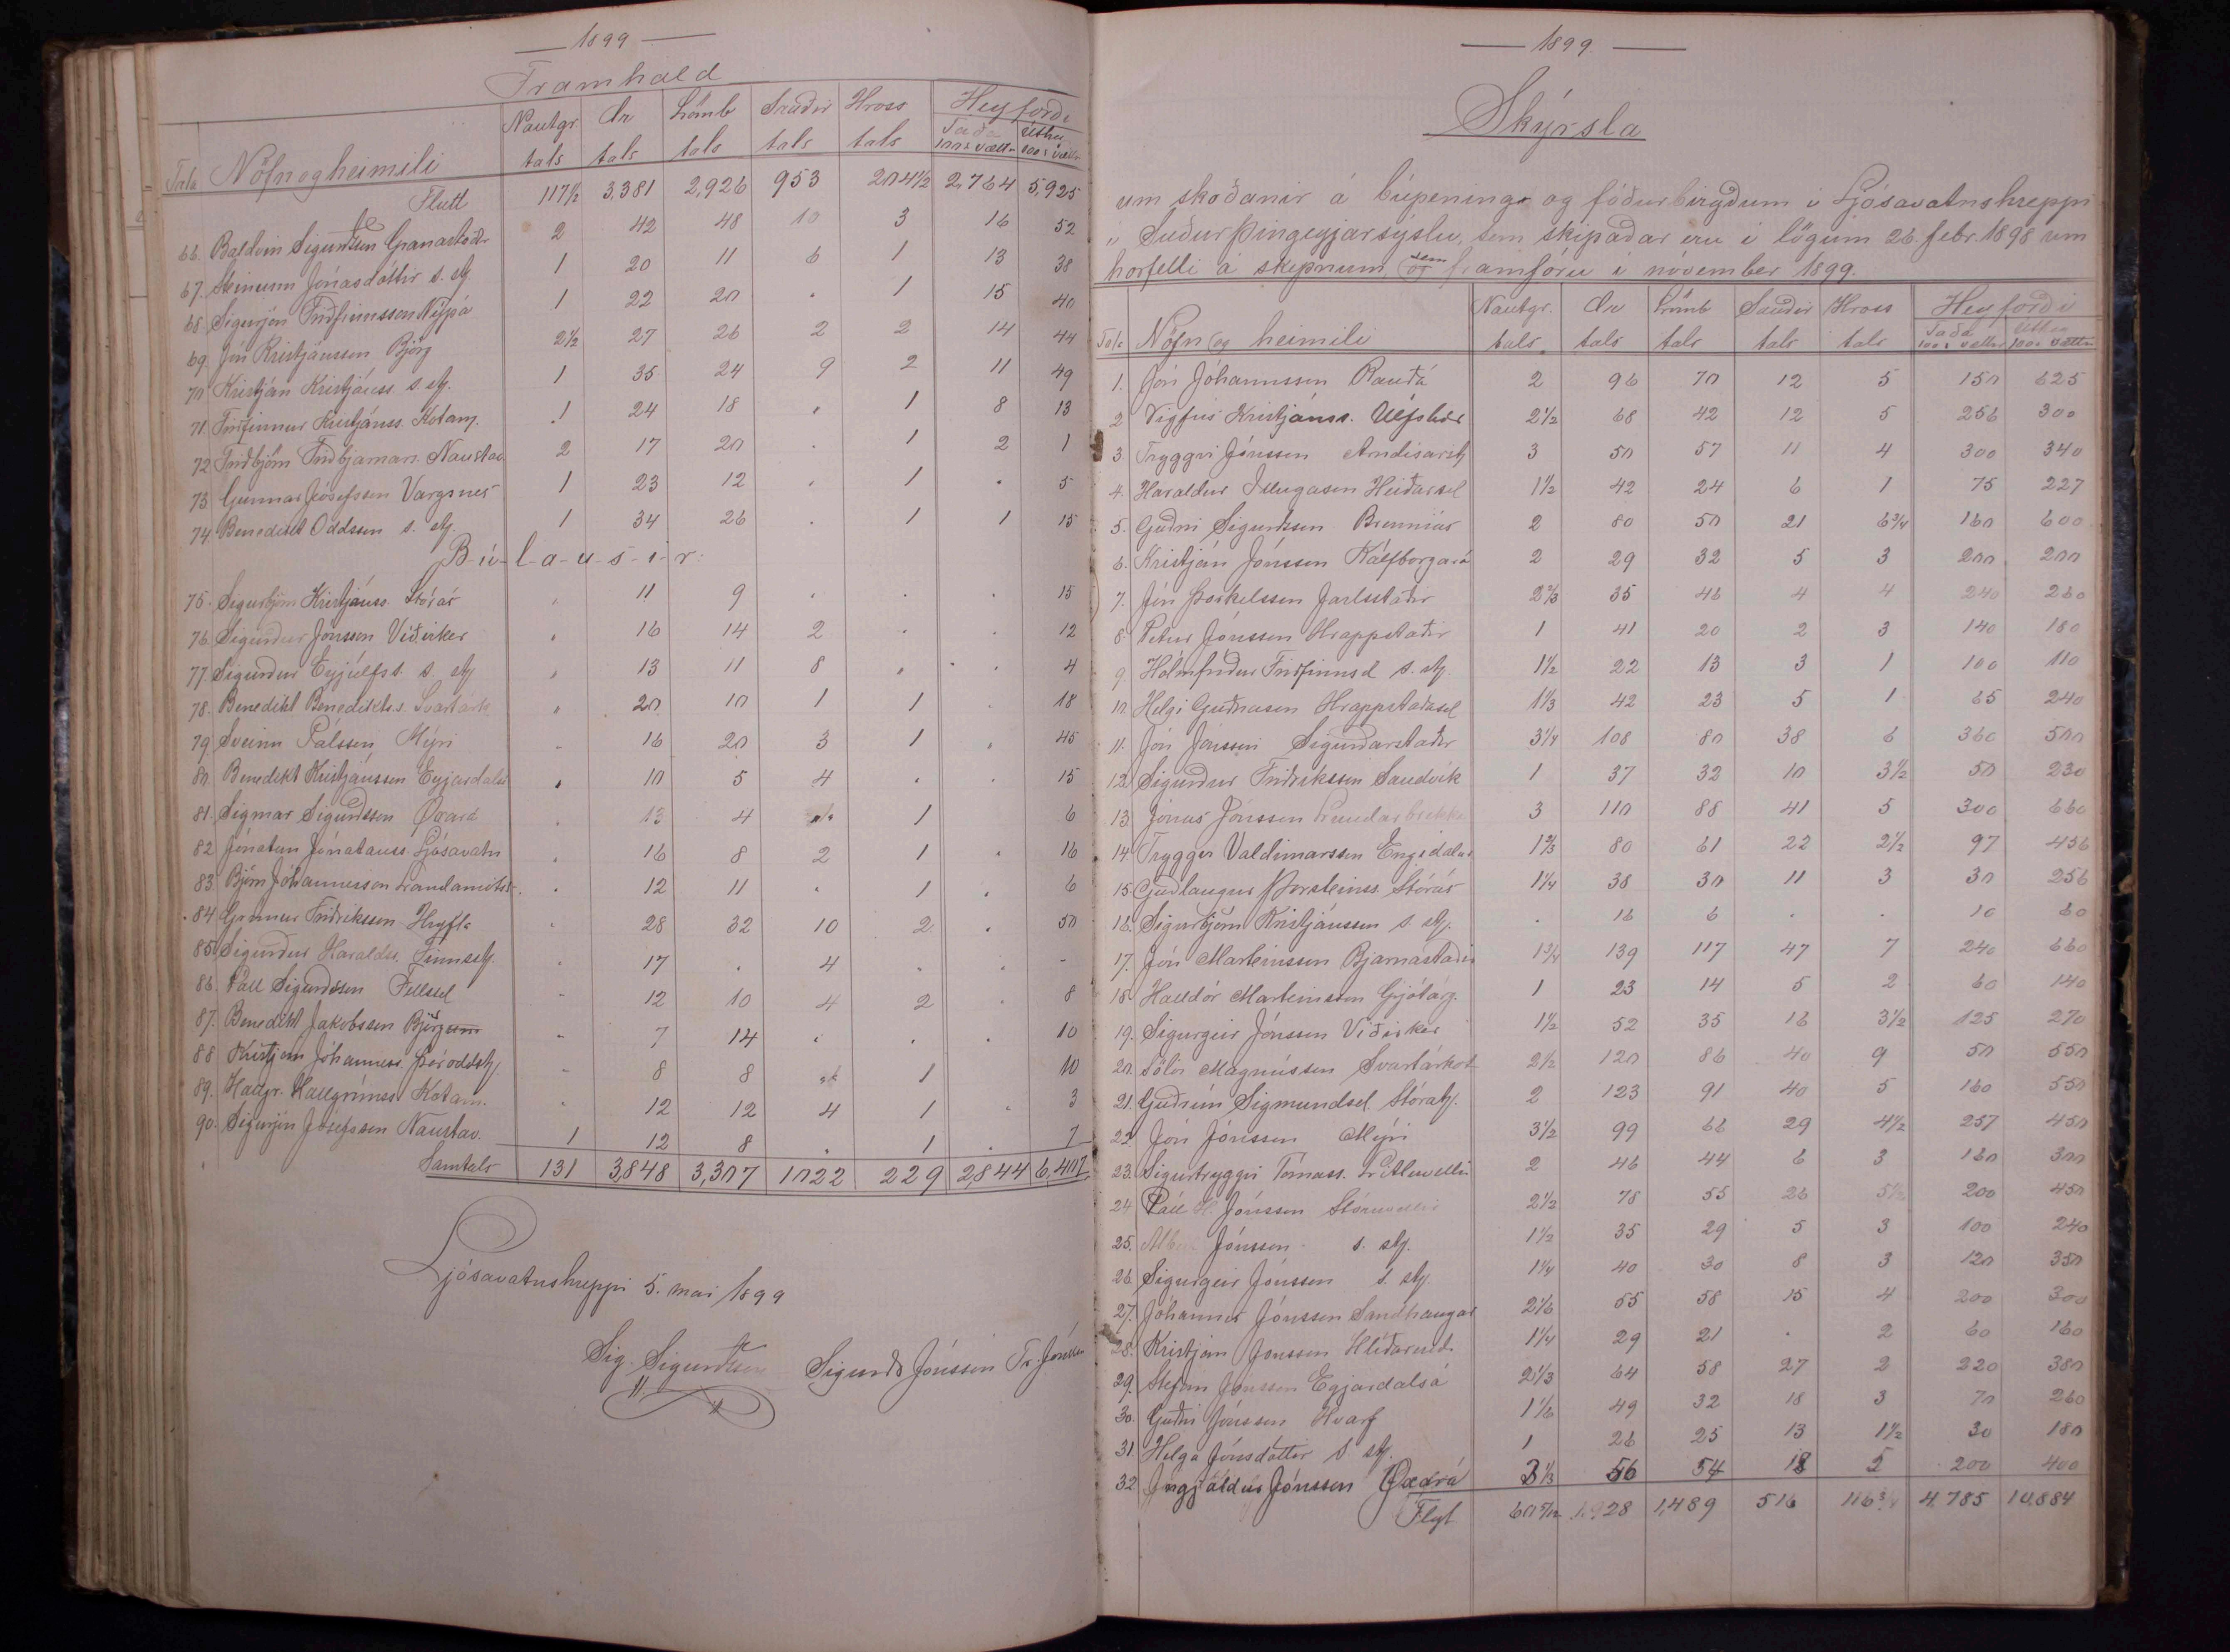 — 1899 —
Framhald
Tala Nöfn og heimili Nautgr. tals Ær tals Lömb tals Sauðir tals Hross tals Heyforði Taða 100 à vættir Úthey 100 à vættir
Flutt 117 1/2 3,381 2,926 953 204 1/2 2,764 5,925
66. Baldvin Sigurðsson Granastöðr 2 42 48 10 3 16 52
67. Steinunn Jónasdóttir s. st. 1 20 11 6 1 13 38
68. Sigurjón Friðfinnsson Nýpá 1 22 20 . 1 15 40
69. Jón Kristjánsson Björg 2 1/2 27 26 2 2 14 44
70 Kristján Kristjánss. s. st. 1 35 24 9 2 11 49
71. Friðfinnur Kristjánss. Kotam. 1 24 18 . 1 8 13
72. Friðbjörn Friðbjarnars. Naustav. 2 17 20 . 1 2 1
73. Gunnar Jósefsson Vargsnes 1 23 12 . 1 . 5
74. Benedikt Oddsson s. st. 1 34 26 . 1 1 15
B-ú-l-a-u-s-i-r.
75. Sigurbjörn Kristjánss. Stórás „ 11 9 . . . 15
76. Sigurður Jónsson Víðirker „ 16 14 2 . . 12
77. Sigurður Eyjúlfss. s. st. „ 13 11 8 . . 4
78. Benedikt Benedikts.s. Svartárk „ 20 10 1 1 . 18
79 Sveinn Pálsson Mýri „ 16 20 3 1 . 45
80 Benedikt Kristjánsson Eyjardalsá „ 10 5 4 . . 15
81. Sigmar Sigurðsson Øxará . 13 4 . 1 6
82 Jónatan Jónatanss Ljósavatn . 16 8 2 1 . 16
83. Björn Jóhannesson Landamótss. . 12 11 . 1 . 6
84 Grímur Friðriksson Hryfl. . 28 32 10 2 . 50
85. Sigurður Haraldss. Finnsst. . 17 . 4 . . -
86. Páll Sigurðsson Fellssel - 12 10 4 2 . 8
87. Benedikt Jakobsson Björg - 7 14 . . . 10
88 Kristján Jóhanness. Þóroddsst. - 8 8 . 1 10
89. Hallgr. Hallgrímss. Kotam. . 12 12 4 1 . 3
90. Sigurjón Jósefsson Naustav. 1 12 8 . 1 . 7
Samtals 131 3,848 3,307 1022 229 2,844 6,407
Ljósavatnshreppi 5. mai 1899
Sig. Sigurðsson Sigurðr Jónsson Tr. Jónsson
— 1899 —
Skýrsla
um skoðanir á búpeningi og fóðurbirgðum í Ljósavatnshreppi
í Suðurþingeyjarsýslu, sem skipaðar eru í lögum 26. febr. 1898 um
horfelli á skepnum, sem framfóru í nóvember 1899.
Tala Nöfn og heimili Nautgr. tals Ær tals Lömb tals Sauðir tals Hross tals Heyforði Taða 100 à vættir Úthey 100 à vættir
1. Jón Jóhannsson Rauðá 2 96 70 12 5 150 625
2 Vigfús Kristjánss. Úlfsbær 2 1/2 68 42 12 5 256 300
3. Tryggvi Jónsson Arndísarst. 3 50 57 11 4 300 340
4. Haraldur Illugason Heiðarsel 1 1/2 42 24 6 1 75 227
5. Guðni Sigurðsson Brenniás 2 80 50 21 6 3/4 160 600
6. Kristján Jónsson Kálfborgará 2 29 32 5 3 200 200
7. Jón Þorkelsson Jarlsstaðir 2 2/3 35 46 4 4 240 260
8. Pétur Jónsson Hrappstaðir 1 41 20 2 3 140 180
9. Hólmfríður Friðfinnsd. s. st. 1 1/2 22 13 3 1 100 110
10 Helgi Guðnason Hrappstaðasel 1 1/3 42 23 5 1 65 240
11. Jón Jónsson Sigurðarstaðir 3 1/4 108 80 38 6 360 500
12. Sigurður Friðriksson Sandvík 1 37 32 10 3 1/2 50 230
13. Jónas Jónsson Lundarbrekka 3 110 88 41 5 300 660
14. Tryggvi Valdimarsson Engidalur 1 2/3 80 61 22 2 1/2 97 456
15. Guðlaugur Þorsteinss. Stórás 1 1/4 38 30 11 3 30 256
16. Sigurbjörn Kristjánsson s. st. . 16 6 . . 10 60
17. Jón Marteinsson Bjarnastaðir 1 3/4 139 117 47 7 240 660
18. Halldór Marteinsson Grjótárg. 1 23 14 5 2 60 140
19. Sigurgeir Jónsson Víðirker 1 1/2 52 35 16 3 1/2 125 270
20. Sölvi Magnússon Svartárkot 2 1/2 120 86 40 9 50 550
21. Guðrún Sigmundsd. Stórat. 2 123 91 40 5 160 550
22 Jón Jónsson Mýri 3 1/2 99 66 29 4 1/2 257 450
23. Sigurtryggvi Tómass. Litluvellir 2 46 44 6 3 160 300
24 Páll H Jónsson Stóruvellir 2 1/2 78 55 26 5 1/2 200 450
25. Jónsson s. st. 1 1/2 35 29 5 3 100 240
26. Sigurgeir Jónsson s. st. 1 1/4 40 30 8 3 120 350
27. Jóhannes Jónsson Sandhaugar 2 1/6 55 58 15 4 200 300
28. Kristján Jónsson Hlíðarend. 1 1/4 29 21 . 2 60 160
29. Stefán Jónsson Eyjardalsá 2 1/3 64 58 27 2 220 380
30. Guðni Jónsson Hvarf 1 1/6 49 32 18 3 70 260
31 Helga Jónsdóttir s st. 1 26 25 13 1 1/2 30 180
32 Ingjaldur Jónsson Øxará 3 1/3 56 54 18 5 200 400
Flyt 60 1,928 1,489 516 116 3/4 4,785 10,884